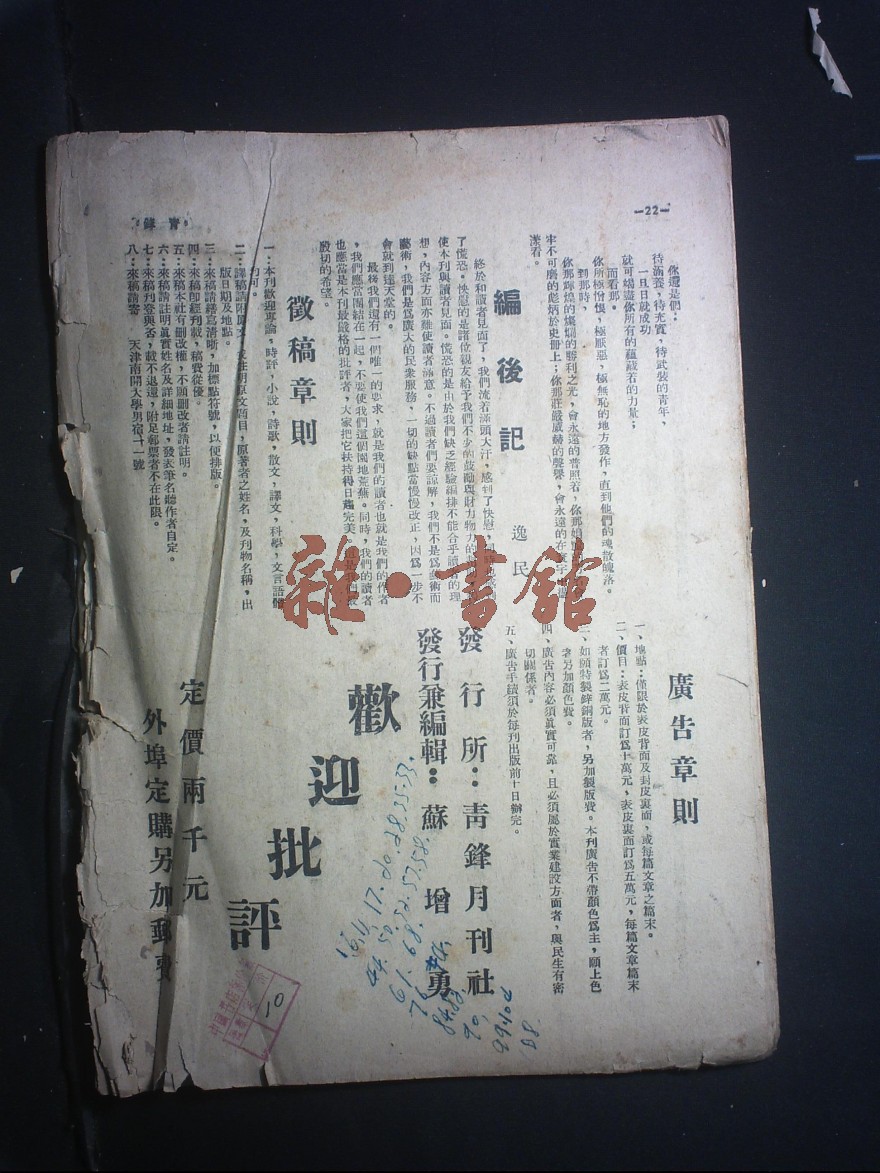 —22—
青鋒
你還是們：
待滿養，待充實，待武裝的青年，
一旦日就成功
就可竭盡你所有的蘊藏若的力量；
而看那。
你所極忿恨，極厭惡，極無恥的地方發作，直到他們的魂散魄落。
到那時，
你那輝煌的燦爛的勝利之光，會永遠的普照着，你那
牢不可磨的彪炳於史冊上；你那莊嚴威赫的聲譽，會永遠的在
潔看。
編後記
逸民
終於和讀者見面了，我們流着滿頭大汗，感到了快慰，
了慌恐。快慰的是諸位親友給予我們不少的鼓勵與財力物力的
使本刊與讀者見面。慌恐的是由於我們缺乏經驗編排不能合乎讀者的理
想，內容方面亦難使讀者滿意。不過讀者們要諒解，我們不是爲藝術而
藝術，我們是爲廣大的民衆服務，一切的缺點當慢慢改正，因爲一步不
會就到達天堂的。
最後我們還有一個唯一的要求，就是我們的讀者也就是我們的作者
，我們應當團結在一起，不要使我們這個園地荒蕪。同時，我們的讀者
也應當是本刊最嚴格的批評者，大家把它扶持得日趨完美。
殷切的希望。
徵稿章則
一：本刊歡迎專論，時評，小說，詩歌，散文，譯文，科學，文言語體
均可。
二：譯稿請附原文，或註明原文題目，原著者之姓名，及刊物名稱，出
版日期及地點。
三：來稿請繕寫清晰，加標點符號，以便排版。
四：來稿即經刊載，稿費從優。
五：來稿本社有刪改權，不願刪改者請註明。
六：來稿請註明真實姓名及詳細地址，發表筆名聽作者自定。
七：來稿刊登與否，載不退還，附足郵票者不在此限。
八：來稿請寄 天津南開大學男宿十一號
廣告章則
一、地點：僅限於表皮背面及封皮裏面，或每篇文章之篇末。
二、價目：表皮背面訂爲十萬元，表皮裏面訂爲五萬元，每篇文章篇末
者訂爲二萬元。
三、如願特製鋅銅版者，另加製版費。本刊廣告不帶顏色爲主，願上色
者另加顏色費。
四、廣告內容必須眞實可靠，且必須屬於實業建設方面者，與民生有密
切關係者。
五、廣告手續須於每刊出版前十日辦完。
發行所：青鋒月刊社
發行兼編輯：蘇增勇
歡迎批評
定價兩千元
外埠定購另加郵費
10
雜·書館